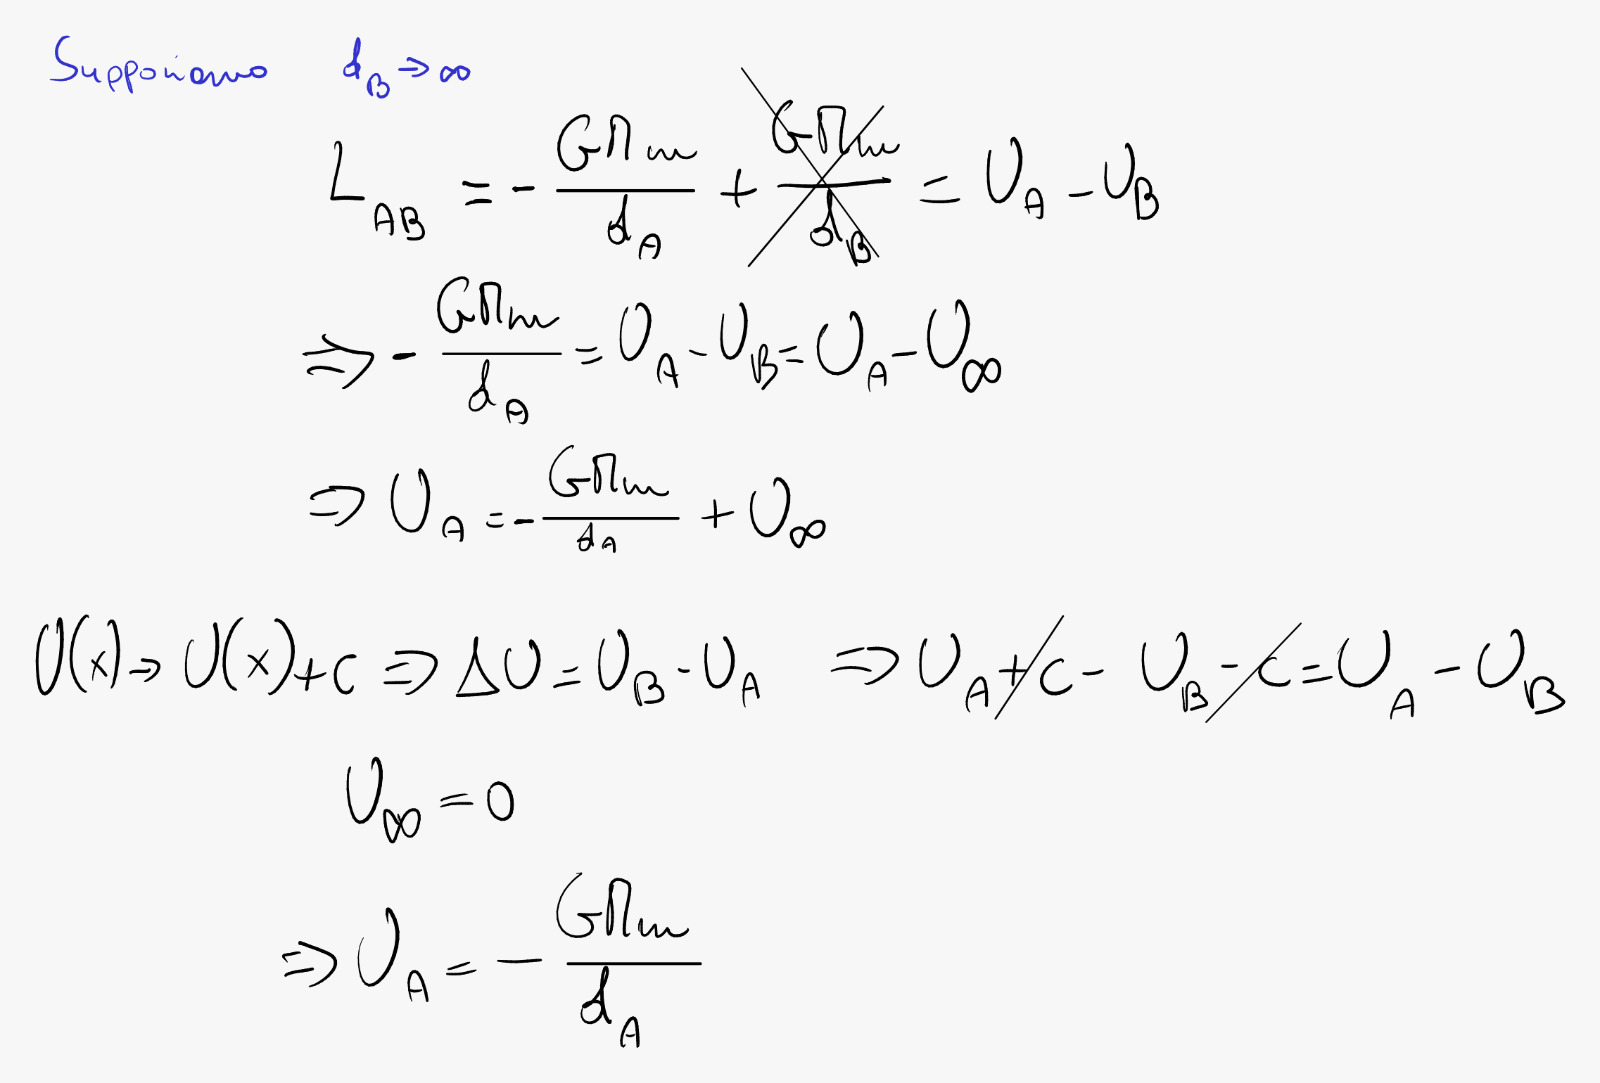 Supponiamo d_B → ∞
L_AB = - GMm/d_A + GMm/d_B = U_A - U_B
⇒ - GMm/d_A = U_A - U_B = U_A - U_∞
⇒ U_A = - GMm/d_A + U_∞
U(x) → U(x) + c ⇒ ΔU = U_B - U_A ⇒ U_A + c - U_B - c = U_A - U_B
U_∞ = 0
⇒ U_A = - GMm/d_A